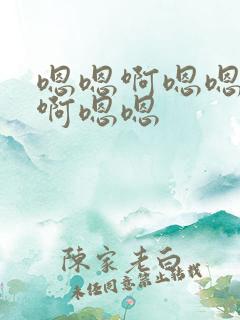 嗯嗯啊嗯嗯
啊嗯嗯
陳家老白
未经同意禁止转载